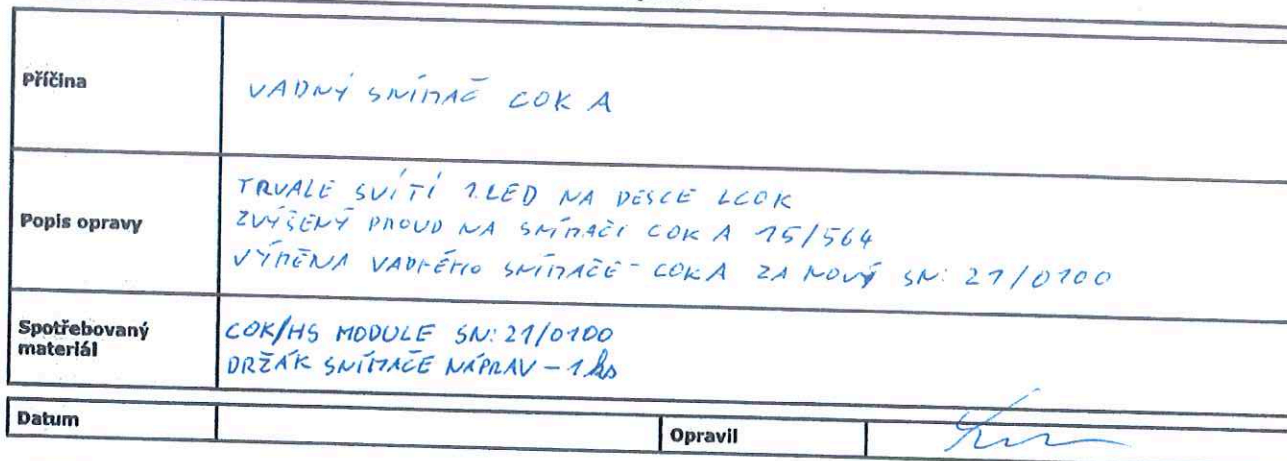 Příčina
VADNÝ SNÍMAČ COK A
Popis opravy
TRVALE SVÍTÍ 1.LED NA DESCE LCOK
ZVÝŠENÝ PROUD NA SNÍMAČI COK A 15/564
VÝMĚNA VADNÉHO SNÍMAČE COKA ZA NOVÝ SN: 21/0100
Spotřebovaný
materiál
COK/HS MODULE SN: 21/0100
DRŽÁK SNÍMAČE NÁPRAV – 1 ks
Datum
Opravil